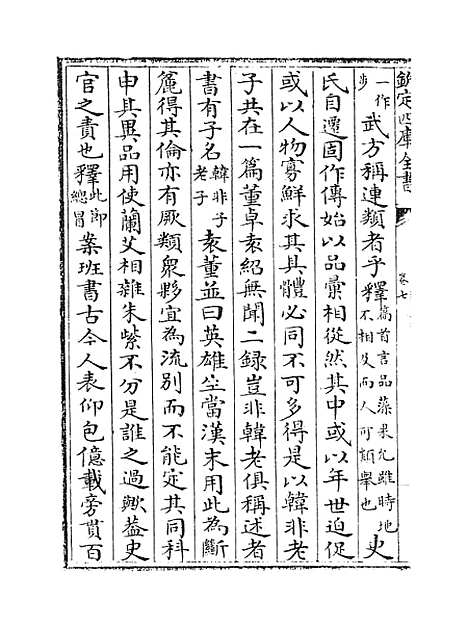 欽定四庫全書
卷七
一作步武方稱連類者乎釋篇首言品藻果允雖時地不相及而人可類舉也史
氏自遷固作傳始以品彙相從然其中或以年世迫促
或以人物寡鮮求其具體必同不可多得是以韓非老
子共在一篇董卓袁紹無聞二録豈非韓老俱稱述者
書有子名韓非子老子袁董並曰英雄生當漢末用此為斷
麤得其倫亦有厥類衆夥宜為流別而不能定其同科
申其異品用使蘭艾相雜朱紫不分是誰之過歟葢史
官之責也釋此即總冒案班書古今人表仰包億載旁貫百